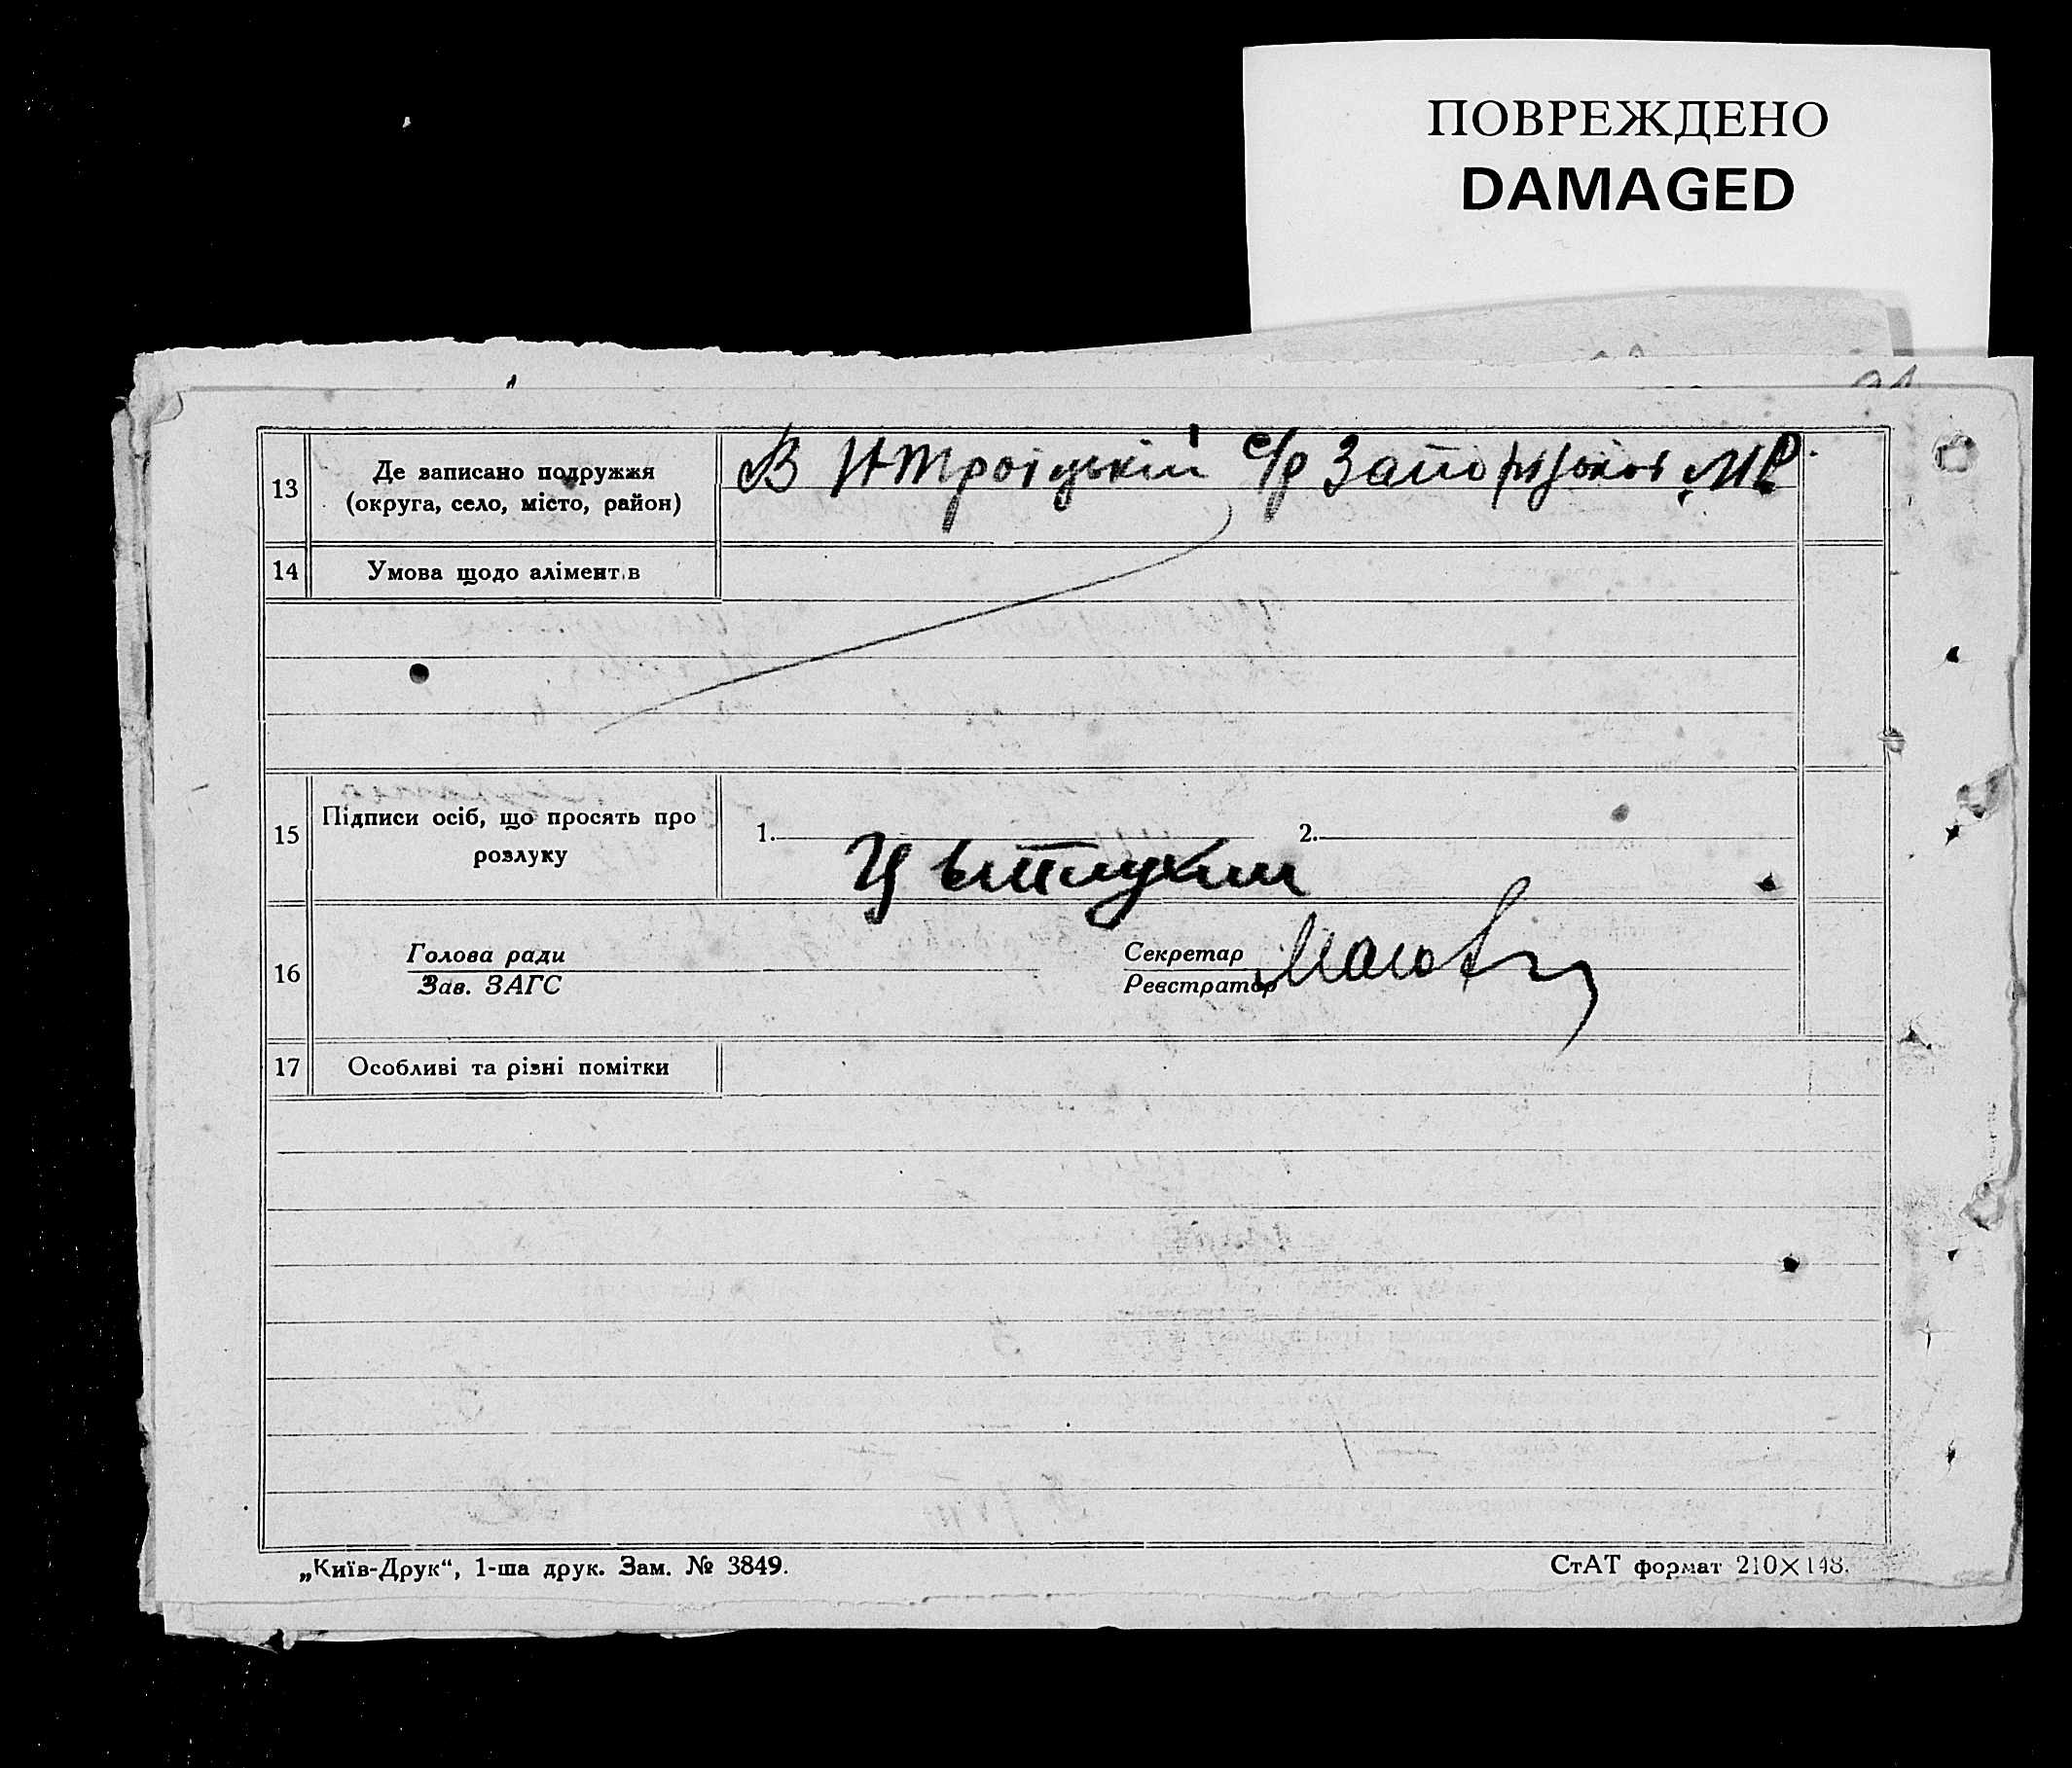 ПОВРЕЖДЕНО
DAMAGED
13
Де записано подружжя
(округа, село, місто, район)
В НТроіцькій с/р Запорізької МР.
14
Умова щодо алімент.в
15
Підписи осіб, що просять про
розлуку
1.
2.
16
Голова ради
Зав. ЗАГС
Секретар
Реєстратор
17
Особливі та різні помітки
„Київ-Друк“, 1-ша друк. Зам. № 3849.
СтАТ формат 210×148.